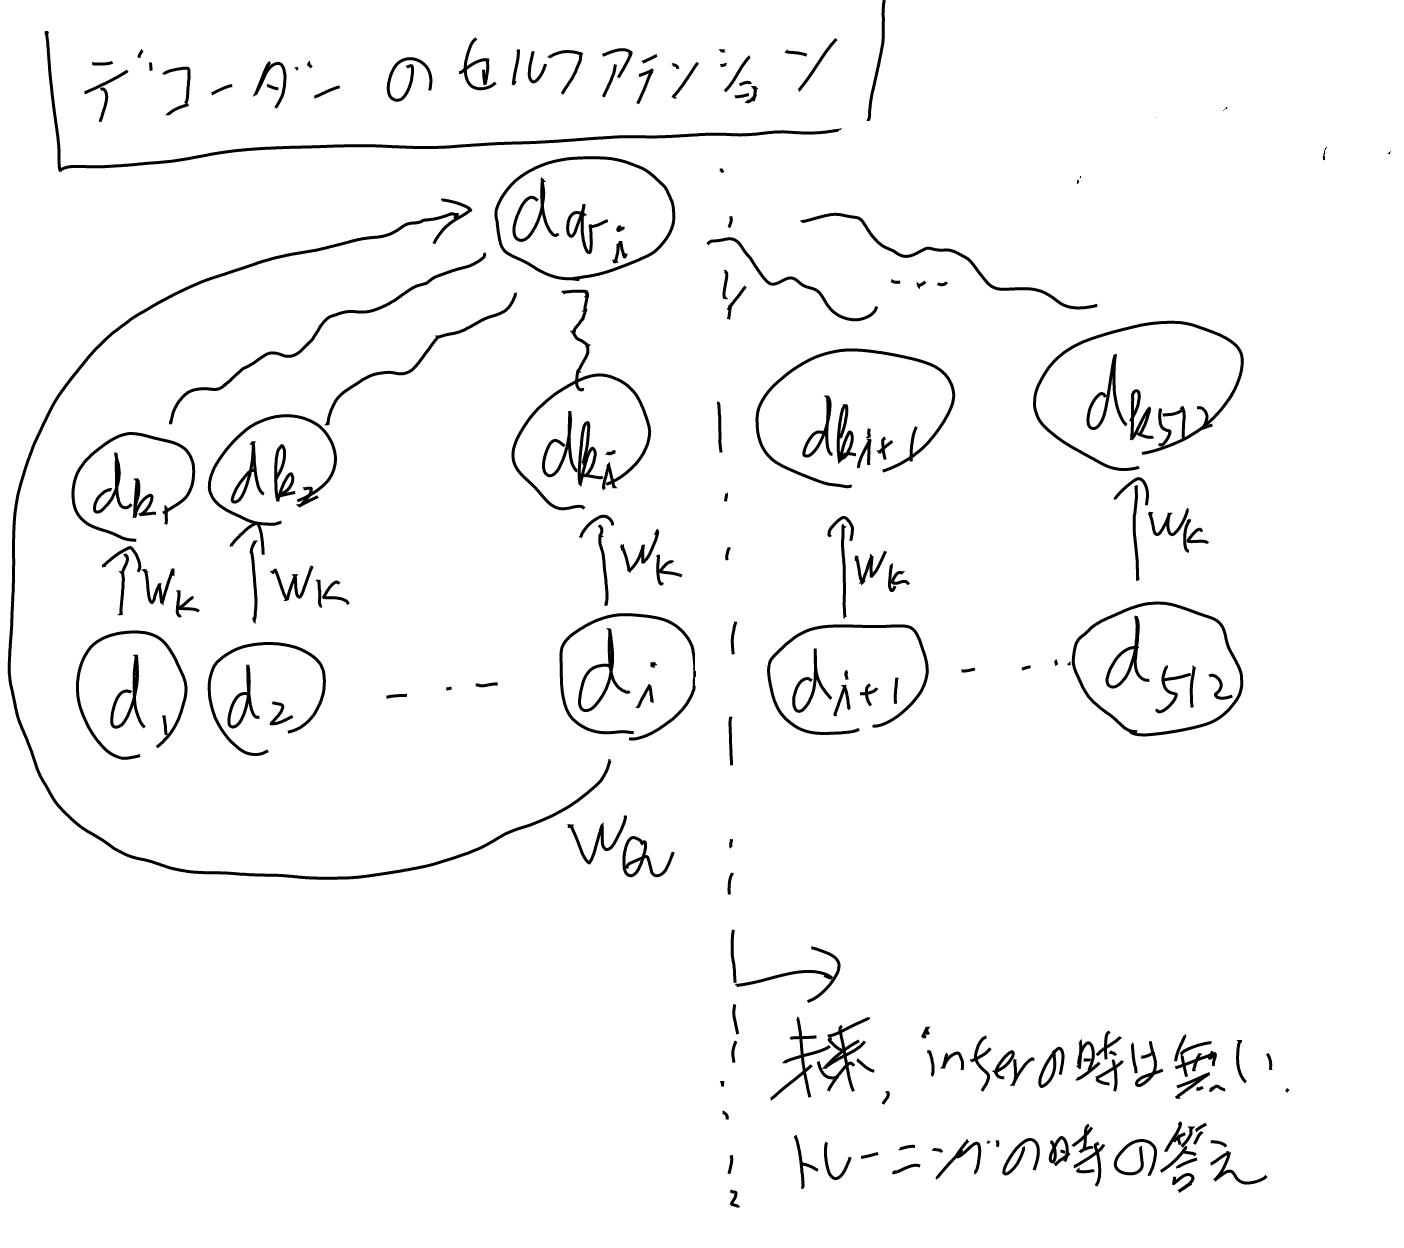 デコーダーのセルフアテンション
dqi
...
dk1 dk2 dki dki+1 dk512
WK WK WK WK WK
d1 d2 --- di di+1 --- d512
WQ
未来, inferの時は無い.
トレーニングの時の答え